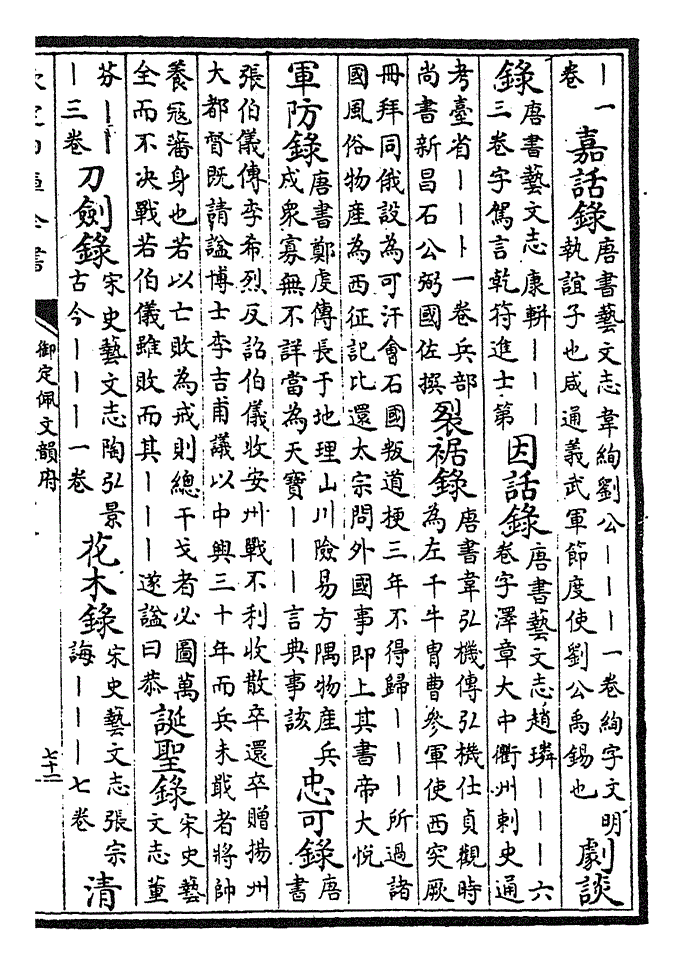 丨一
卷
嘉話錄
唐書藝文志韋絢劉公丨丨丨一卷絢字文明
執誼子也咸通義武軍節度使劉公禹錫也
劇談
錄
唐書藝文志康軿丨丨丨
三卷字駕言乾符進士第
因話錄
唐書藝文志趙璘丨丨丨六
卷字澤章大中衢州刺史通
考臺省丨丨卜一卷兵部
尚書新昌石公弼國佐撰
裂裾錄
唐書韋弘機傳弘機仕貞觀時
為左千牛胄曹參軍使西突厥
冊拜同俄設為可汗會石國叛道梗三年不得歸丨丨丨所過諸
國風俗物産為西征記比還太宗問外國事即上其書帝大悅
軍防錄
唐書鄭虔傳長于地理山川險易方隅物産兵
戍衆寡無不詳當為天寶丨丨丨言典事該
忠可錄
唐
書
張伯儀傳李希烈反詔伯儀收安州戰不利收散卒還卒贈揚州
大都督既請諡博士李吉甫議以中興三十年而兵未戢者將帥
養冦藩身也若以亡敗為戒則總干戈者必圖萬
全而不决戰若伯儀雖敗而其丨丨丨遂諡曰恭
誕聖錄
宋史藝
文志董
芬丨丨
丨三卷
刀劍錄
宋史藝文志陶弘景
古今丨丨丨一卷
花木錄
宋史藝文志張宗
誨丨丨丨七卷
清
御定佩文韻府
七十二